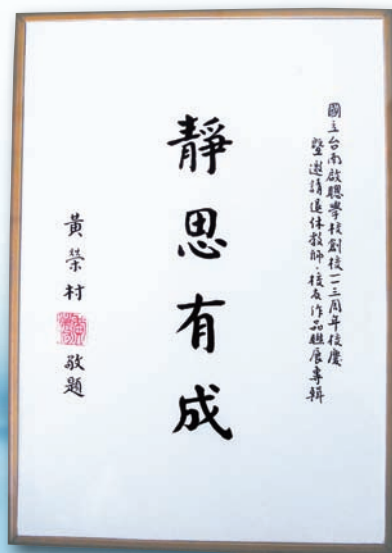 國立台南啟聰學校創校一一三周年校慶
暨邀請退休教師、校友作品聯展專輯
靜思有成
黃榮村 敬題